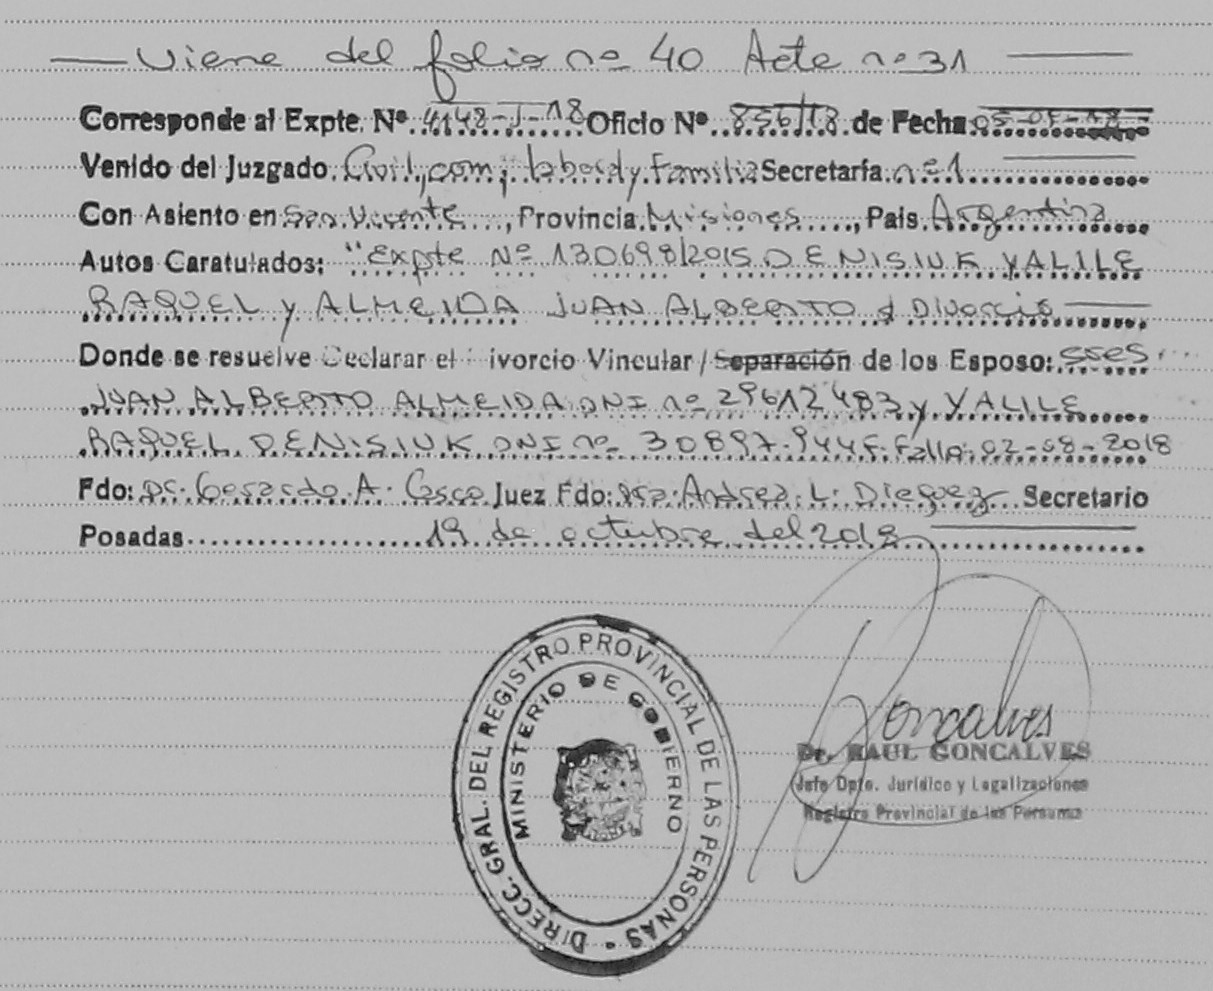 Viene del folio nº 40 Acta nº 31
Corresponde al Expte. Nº 4148-J-18 Oficio Nº 856/18 de Fecha
Venido del Juzgado Civil, com, laboral y Familia Secretaría nº 1
Con Asiento en San Vicente, Provincia Misiones, Pais Argentina
Autos Caratulados: "Expte Nº 130698/2015 DENISIUK YALILE
RAQUEL y ALMEIDA JUAN ALBERTO s/ Divorcio
Donde se resuelve Declarar el Divorcio Vincular / Separación de los Esposo: sses
JUAN ALBERTO ALMEIDA DNI nº 29612483 y YALILE
RAQUEL DENISIUK DNI nº 30897.944 F. Fallo: 02-08-2018
Fdo: Dr. Gerardo A. Casco Juez Fdo: Dra. Andrea L. Dieguez Secretario
Posadas 19 de octubre del 2018
DIRECC. GRAL. DEL REGISTRO PROVINCIAL DE LAS PERSONAS
MINISTERIO DE GOBIERNO
Goncalves
Dr. RAUL GONCALVES
Jefe Dpto. Jurídico y Legalizaciones
Registro Provincial de las Personas